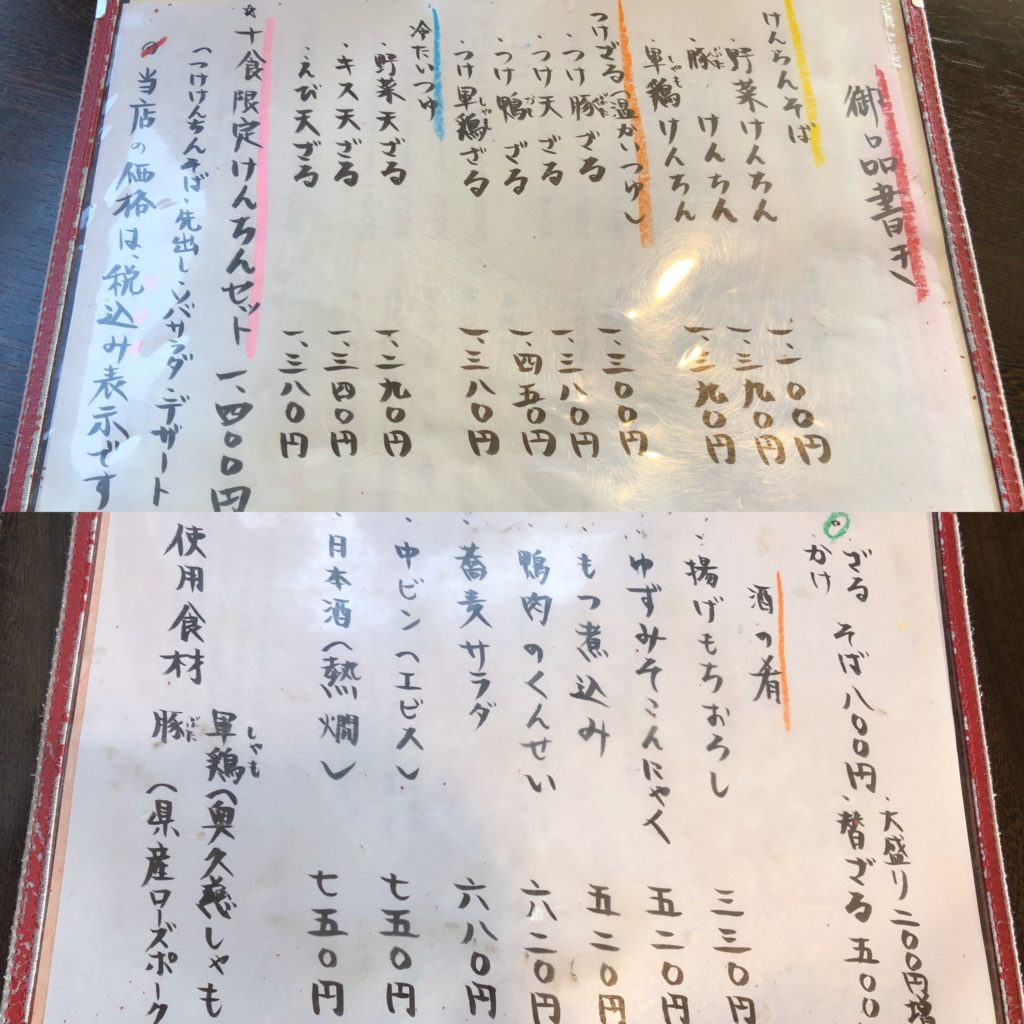 御品書き
けんちんそば
・野菜けんちん 一、一〇〇円
・豚ぶたけんちん 一、三九〇円
・軍鶏しゃもけんちん 一、三九〇円
つけざる(温かいつゆ)
・つけ豚ぶたざる 一、三〇〇円
・つけ天ざる 一、三八〇円
・つけ鴨かもざる 一、四五〇円
・つけ軍鶏しゃもざる 一、三八〇円
冷たいつゆ
・野菜天ざる 一、二九〇円
・キス天ざる 一、三四〇円
・えび天ざる 一、三八〇円
☆十食限定けんちんセット 一、四〇〇円
(つけけんちんそば・先出しミバサラダ・デザート
当店の価格は、税込み表示です
大盛り二〇〇円増
◎・ざる そば八〇〇円・替ざる 五〇〇
・かけ
酒の肴
・揚げもちおろし 三三〇円
・ゆずみそこんにゃく 五二〇円
・もつ煮込み 五二〇円
・鴨肉のくんせい 六二〇円
・蕎麦サラダ 六八〇円
・中ビン(エビス) 七五〇円
・日本酒(熱燗) 七五〇円
使用食材
軍鶏しゃも(奥久慈しゃも
豚ぶた(県産ローズポーク